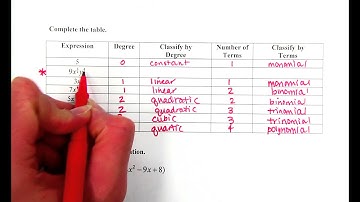 Complete the table.
Expression Degree Classify by Degree Number of Terms Classify by Terms
5 0 constant 1 monomial
*
1 linear 1 monomial
1 linear 2 binomial
2 quadratic 2 binomial
2 quadratic 3 trinomial
cubic 3 trinomial
quartic 4 polynomial
− 9x + 8)